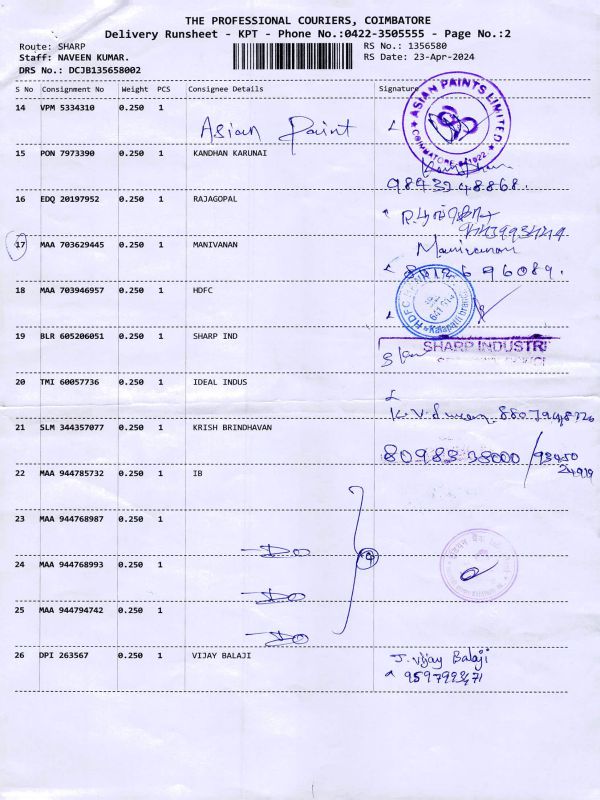 THE PROFESSIONAL COURIERS, COIMBATORE
Delivery Runsheet - KPT - Phone No.:0422-3505555 - Page No.:2
Route: SHARP
RS No.: 1356580
Staff: NAVEEN KUMAR.
RS Date: 23-Apr-2024
DRS No.: DCJB135658002
S No Consignment No Weight PCS Consignee Details Signature
14 VPM 5334310 0.250 1 Asian Paint
ASIAN PAINTS LIMITED
15 PON 7973390 0.250 1 KANDHAN KARUNAI
16 EDQ 20197952 0.250 1 RAJAGOPAL
17 MAA 703629445 0.250 1 MANIVANAN Manivanan
18 MAA 703946957 0.250 1 HDFC
HDFC
Kalapatti branch
19 BLR 605206051 0.250 1 SHARP IND
SHARP INDUSTRI
20 TMI 60057736 0.250 1 IDEAL INDUS
21 SLM 344357077 0.250 1 KRISH BRINDHAVAN
22 MAA 944785732 0.250 1 IB
23 MAA 944768987 0.250 1
Do
24 MAA 944768993 0.250 1 4
Do
25 MAA 944794742 0.250 1
Do
26 DPI 263567 0.250 1 VIJAY BALAJI J. Vijay Balaji